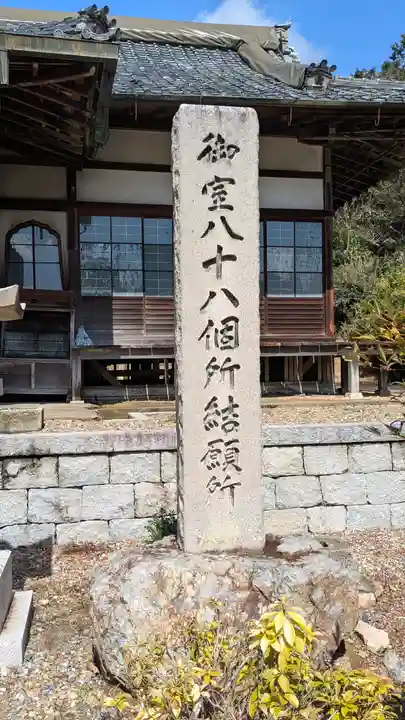 御室八十八個所結願所